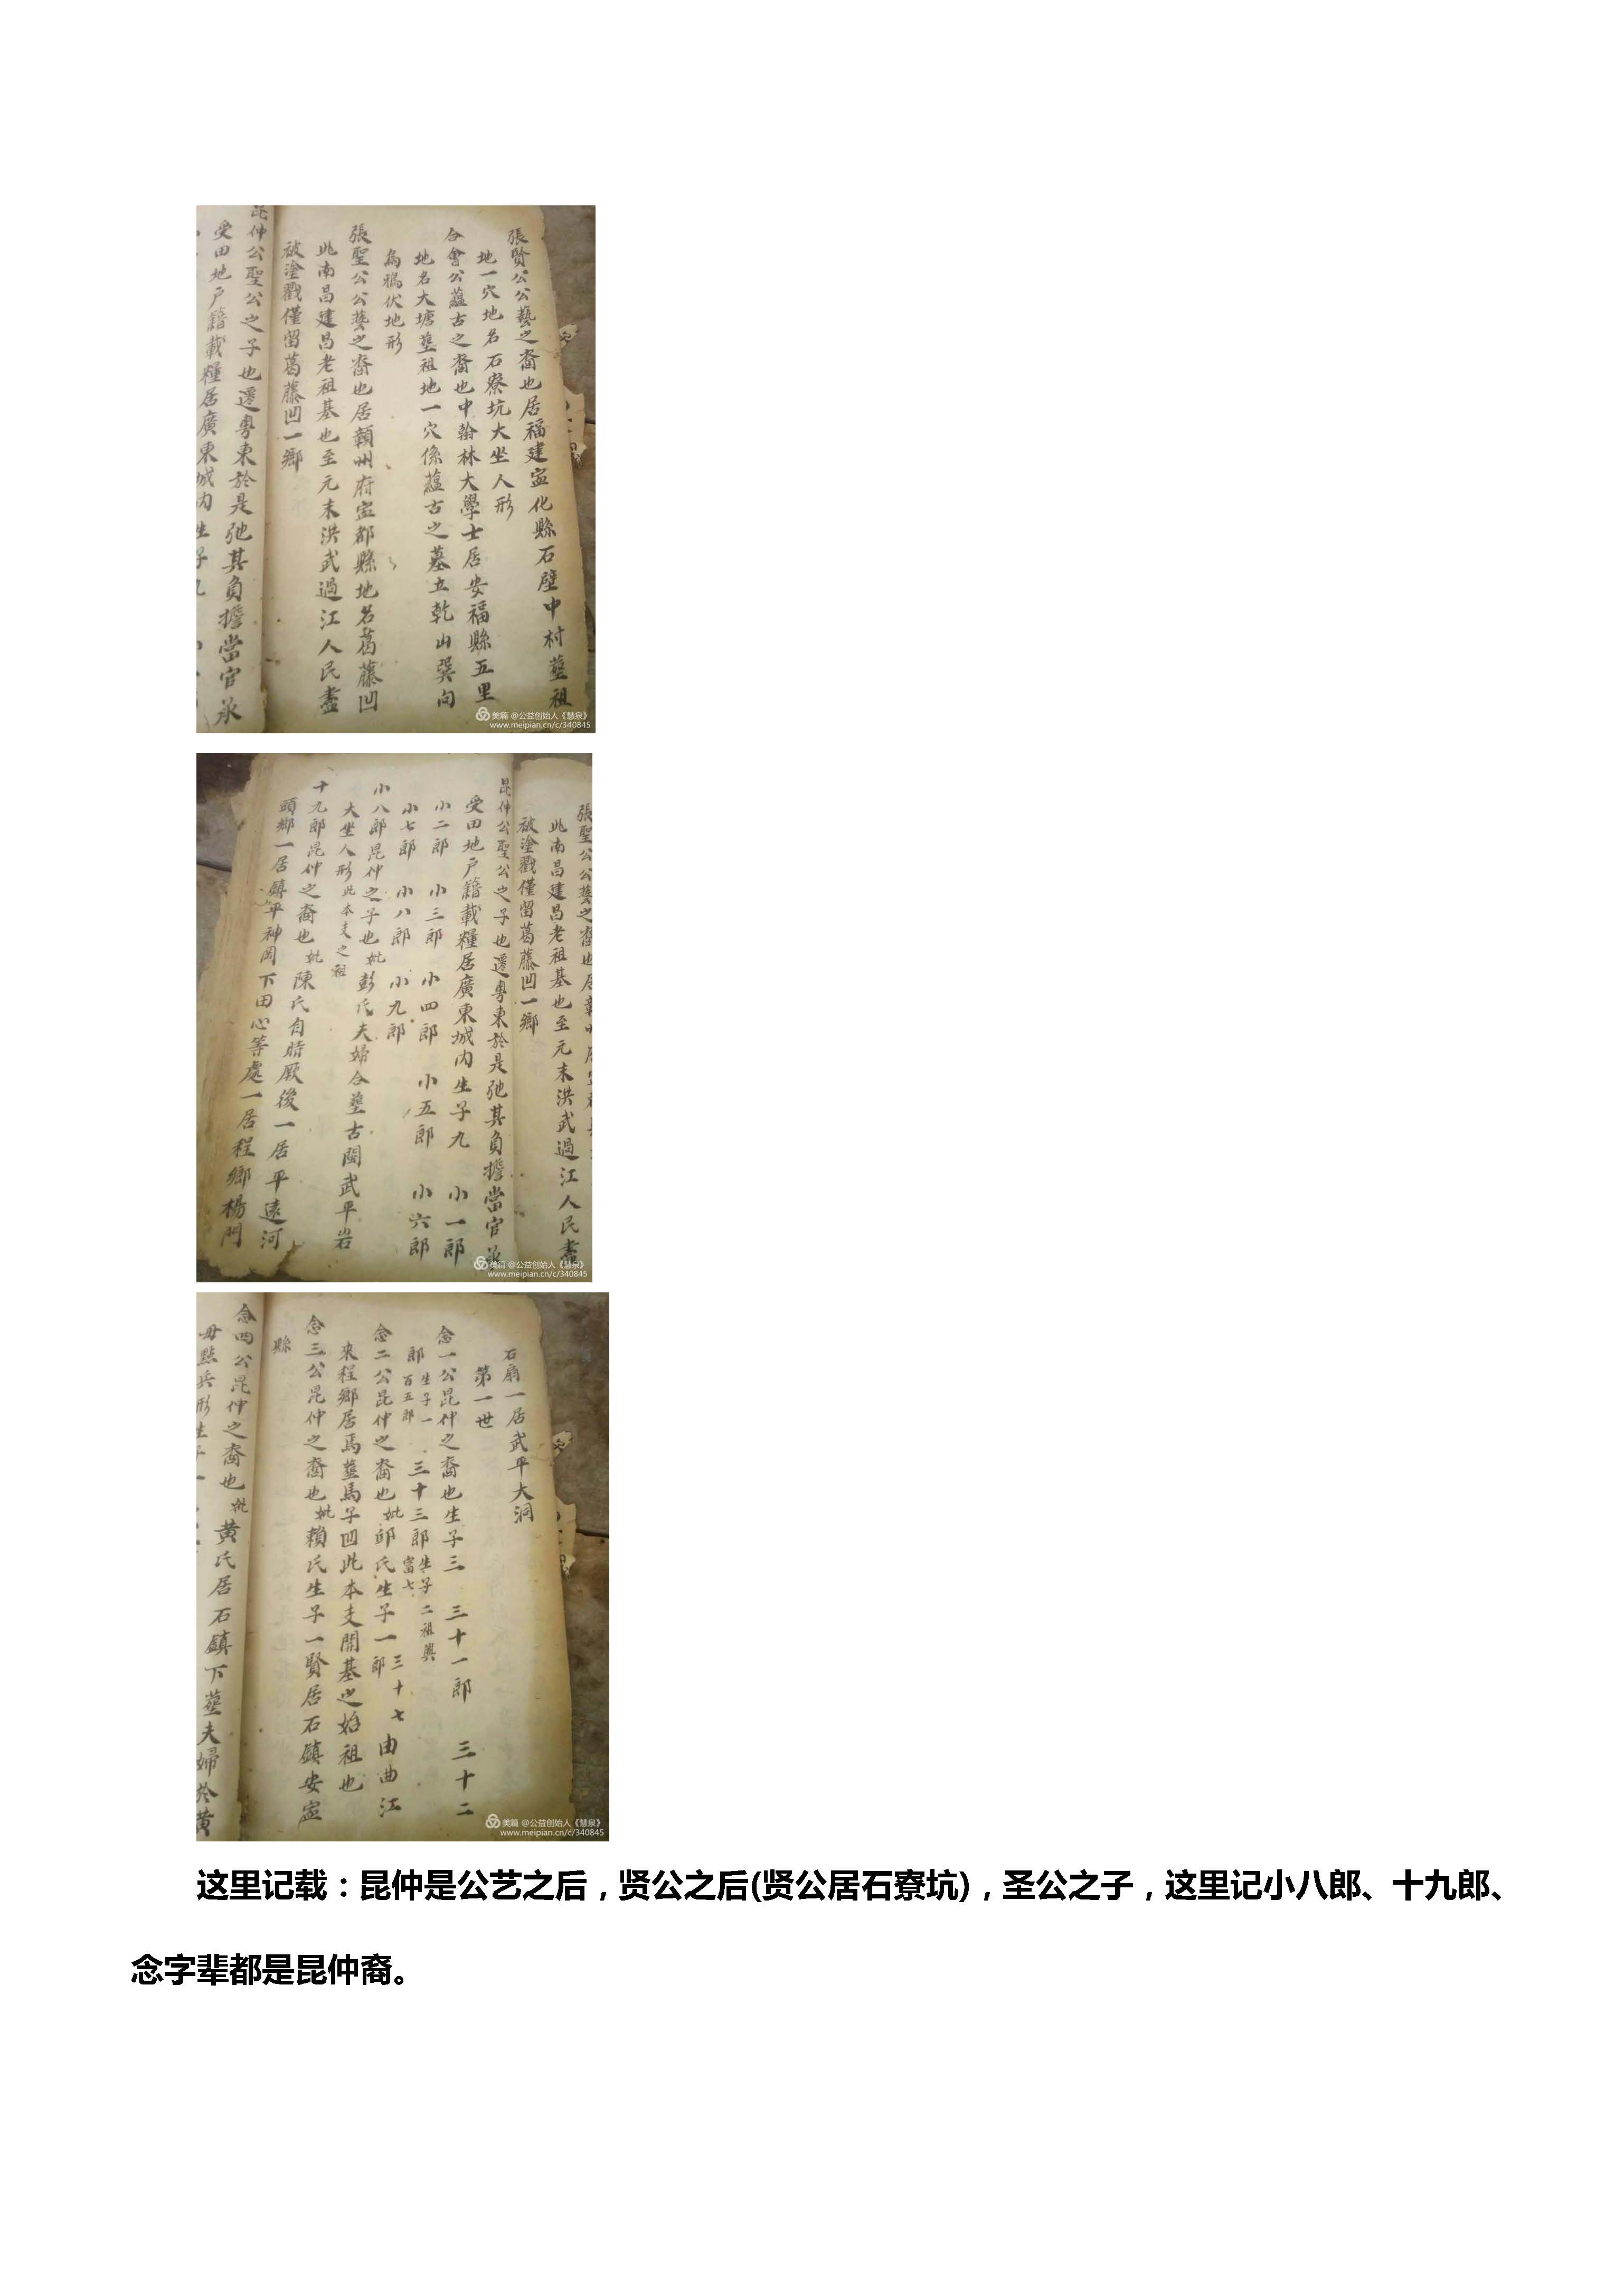 張賢公公藝之裔也居福建寍化縣石壁中村塟祖
地一穴地名石寮坑大坐人形
合會公蘊古之裔也中翰林大學士居安福縣五里
地名大塘塟祖地一穴係蘊古之墓立乾山巽向
烏鴉伏地形
張聖公公藝之裔也居贛州府寍都縣地名葛藤凹
此南昌建昌老祖基也至元末洪武過江人民盡
被塗戮僅留葛藤凹一鄉
昆仲公聖公之子也遷粵東於是弛其負擔當官承
受田地戶籍載糧居廣東城內生子九
美篇 @公益创始人《慧泉》
www.meipian.cn/c/340845
張聖公公藝之裔也居
此南昌建昌老祖基也至元末洪武過江人民盡
被塗戮僅留葛藤凹一鄉
昆仲公聖公之子也遷粵東於是弛其負擔當官承
受田地戶籍載糧居廣東城內生子九 小一郎
小二郎 小三郎 小四郎 小五郎 小六郎
小七郎 小八郎 小九郎
小八郎昆仲之子也妣彭氏夫婦合塟古閩武平岩
大坐人形此本支之祖
十九郎昆仲之裔也妣陳氏自時厥後一居平遠河
頭鄉一居鎮平神岡下田心等處一居程鄉楊門
美篇 @公益创始人《慧泉》
www.meipian.cn/c/340845
石扇一居武平大洞
第一世
念一公昆仲之裔也生子三 三十一郎 三十二
郎生子一百五郎 三十三郎生子二祖興富七
念二公昆仲之裔也妣邱氏生子一三十七郎由曲江
來程鄉居焉塟馬子凹此本支開基之始祖也
念三公昆仲之裔也妣賴氏生子一賢居石鎮安寍
縣
念四公昆仲之裔也妣黃氏居石鎮下塟夫婦於黃
毋點兵形生子一
美篇 @公益创始人《慧泉》
www.meipian.cn/c/340845
这里记载：昆仲是公艺之后，贤公之后(贤公居石寮坑)，圣公之子，这里记小八郎、十九郎、
念字辈都是昆仲裔。